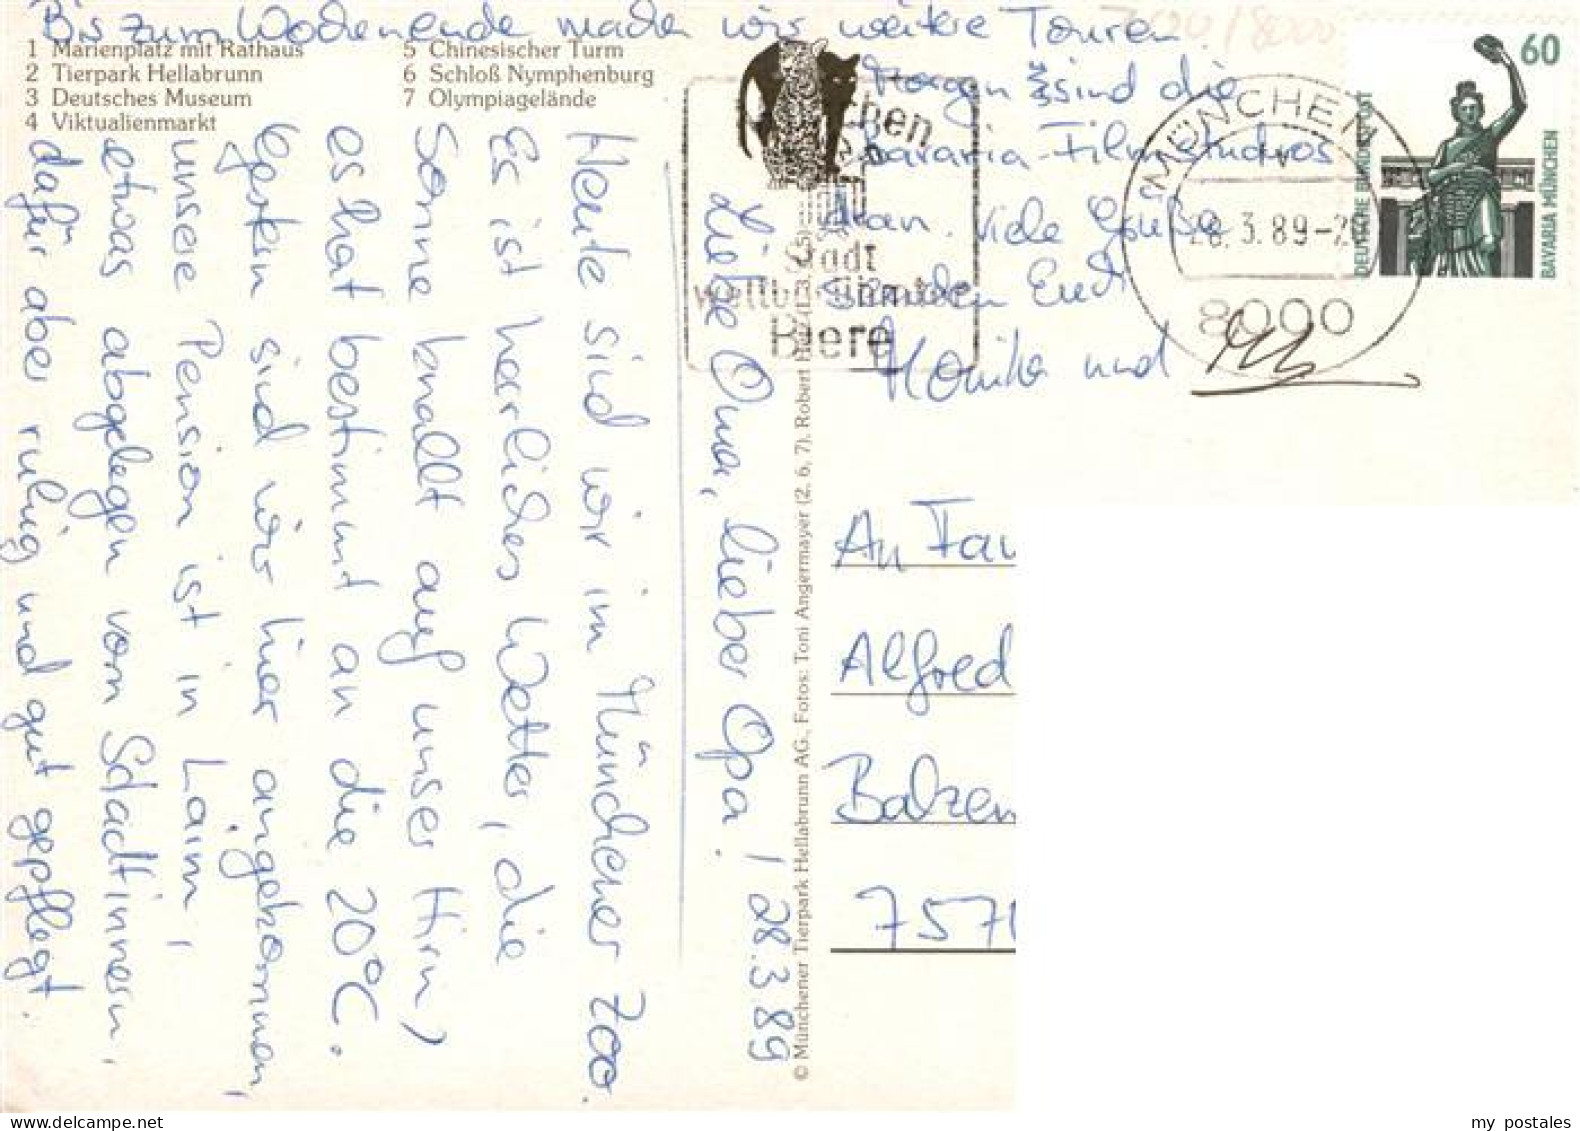 Bis zum Wochenende machen wir weitere Touren.
1 Marienplatz mit Rathaus
2 Tierpark Hellabrunn
3 Deutsches Museum
4 Viktualienmarkt
5 Chinesischer Turm
6 Schloß Nymphenburg
7 Olympiagelände
Liebe Oma, lieber Opa! 28.3.89
Heute sind wir im Münchener Zoo.
Es ist herrliches Wetter, die
Sonne knallt auf unser Hirn,
es hat bestimmt an die 20°C.
Gestern sind wir hier angekommen,
unsere Pension ist in Laim,
etwas abgelegen vom Stadtinnern,
dafür aber ruhig und gut gepflegt.
Morgen sind die
Bavaria-Filmstudios
dran. Viele Grüße
senden Euch
Monika und
© Münchener Tierpark Hellabrunn AG., Fotos: Toni Angermayer (2, 6, 7), Robert
Stadt
Biere
MÜNCHEN
28.3.89-2
8000
60
DEUTSCHE BUNDESPOST
BAVARIA MÜNCHEN
An Fam
Alfred
7570
my postales